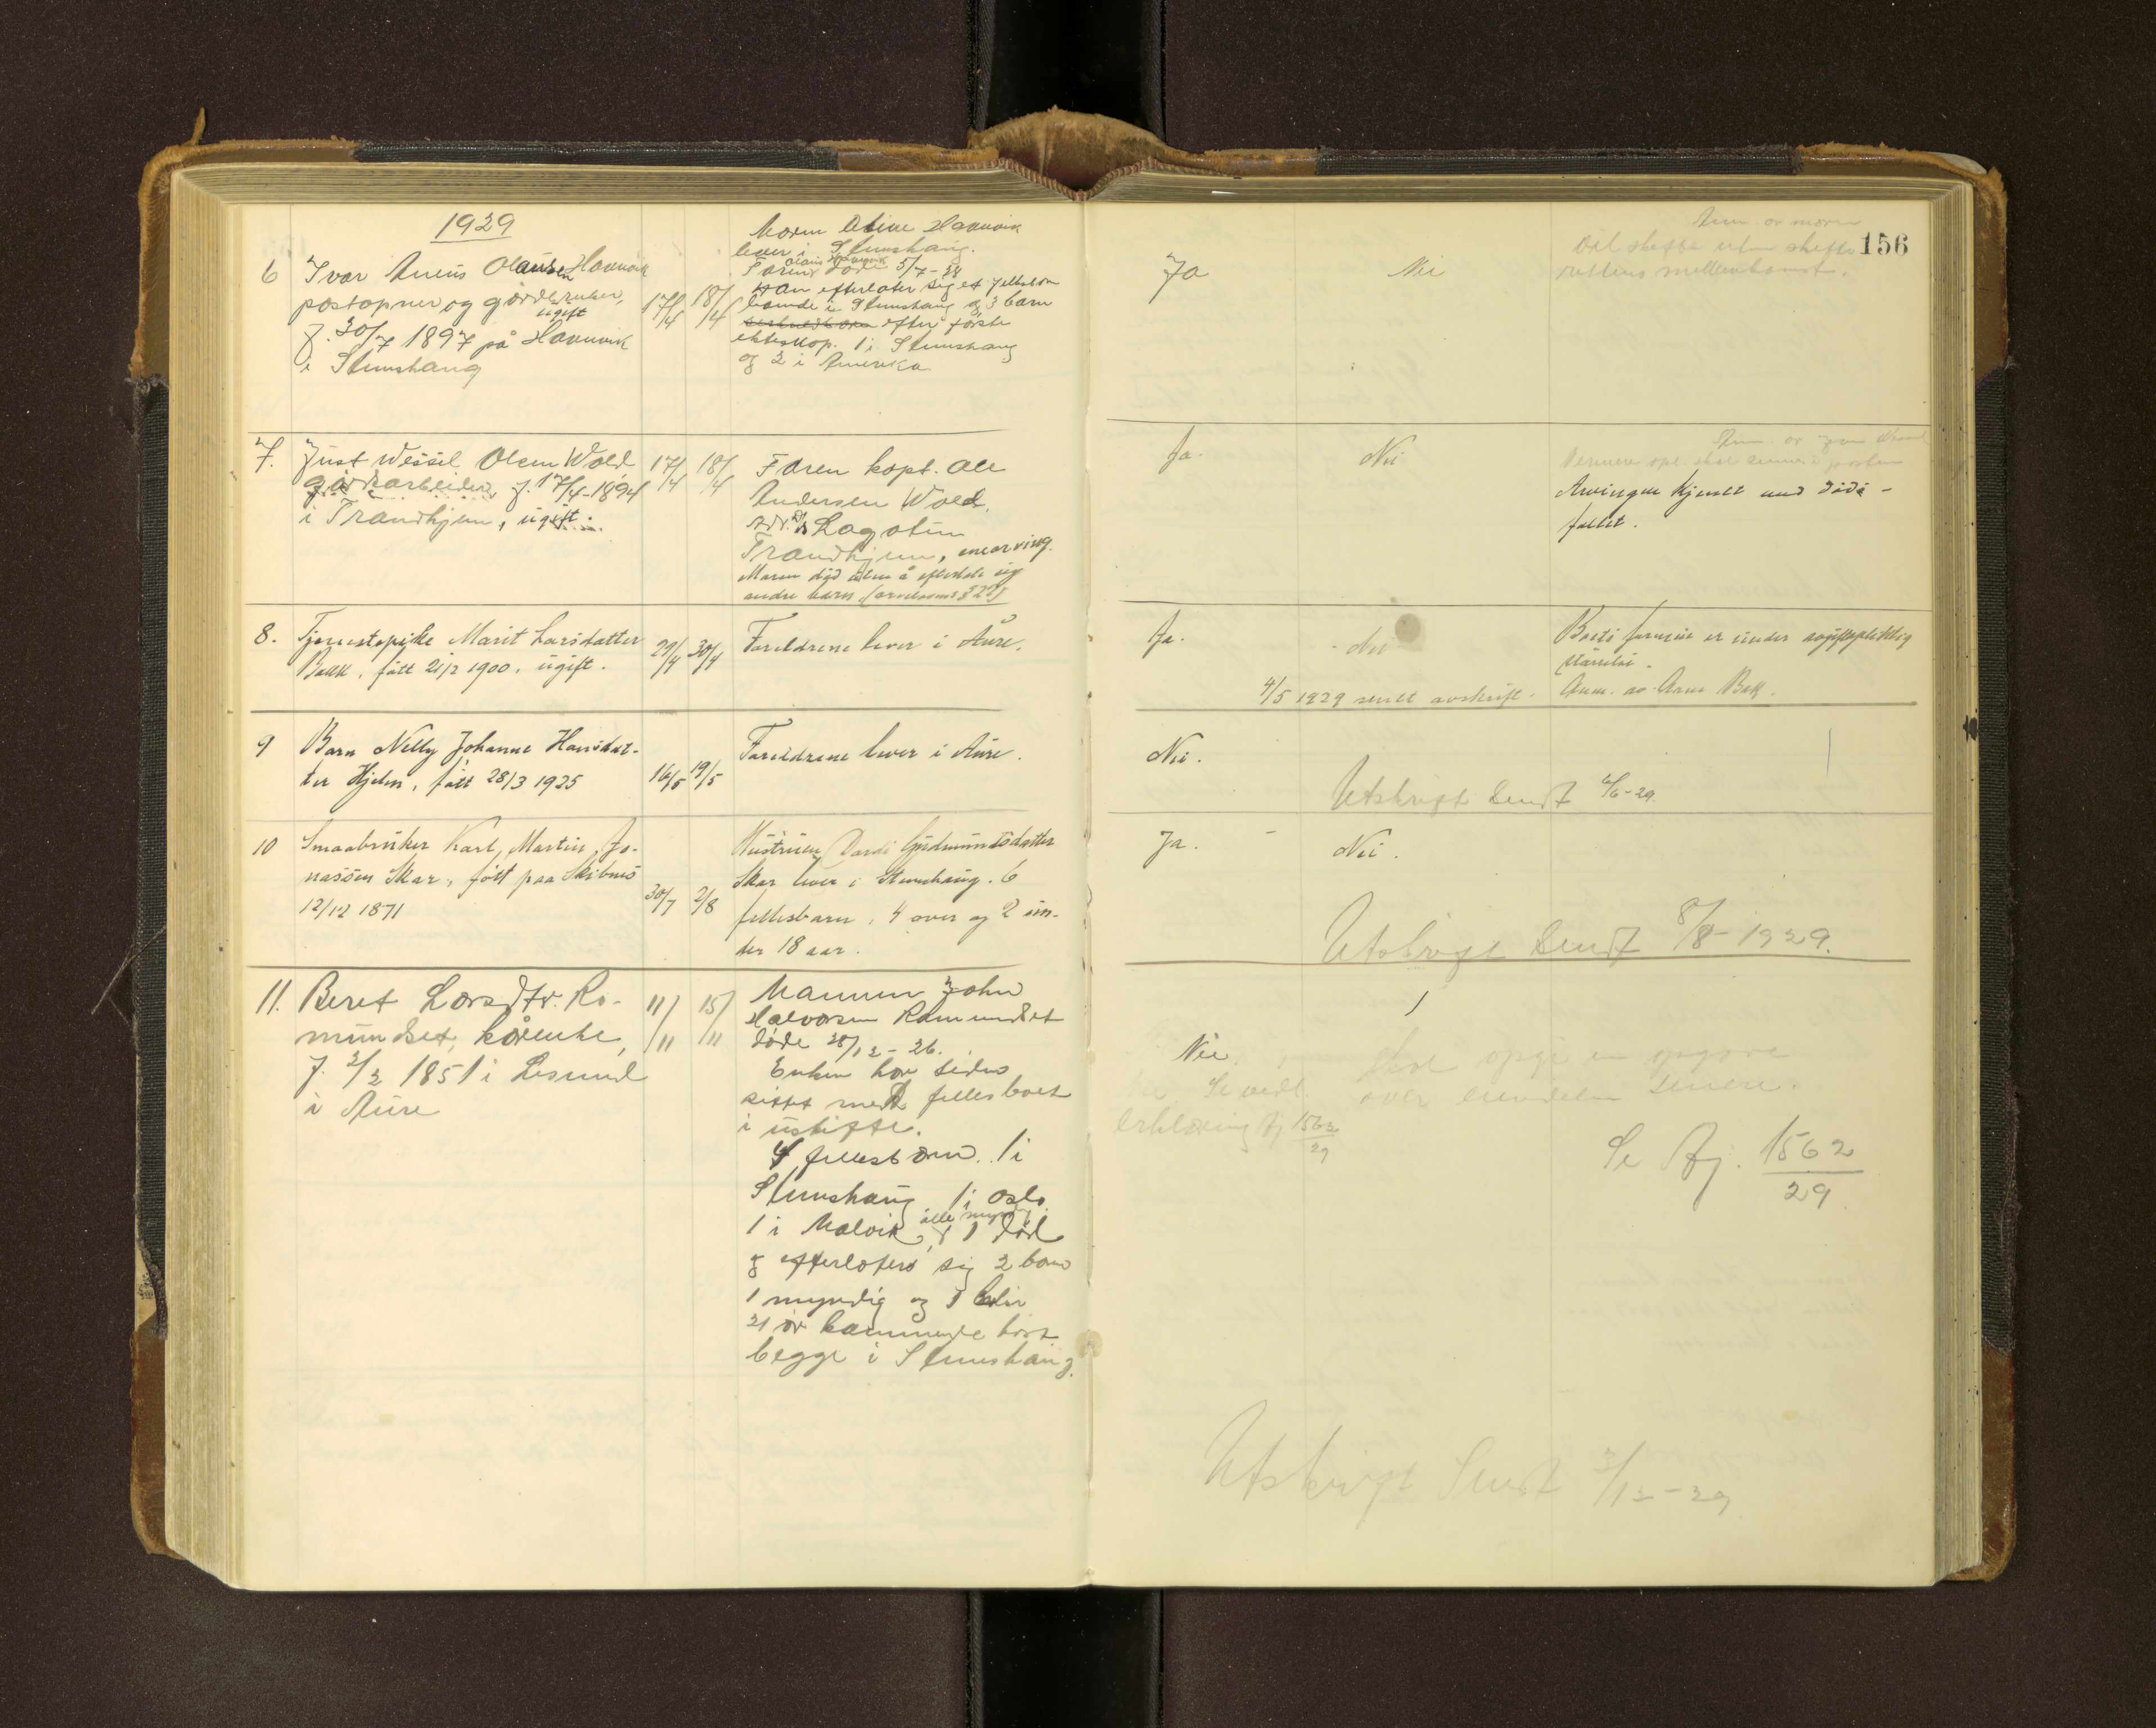 1929
6 Ivar Aneus Olausen Havnvik
postopner og gårdbruker,
ugift
f. 30/7 1897 på Havnvik
i Stemshaug
17/4 18/4
Moren Oline Havnvik
lever i Stemshaug.
Olaus Havnvik
Faren døde 5/7-28
Han efterlater sig et fellesbarn
boende i Stemshaug og 3 barn
efter første
ekteskap. 1 i Stemshaug
og 2 i Amerika
Ja
Nei
Anm. av moren
Vil skifte uten skifte
rettens mellemkomst.
156
7. Just Wessel Olsen Wold
gårdsarbeider, f. 17/4-1894
i Trondhjem, ugift.
17/4 18/4
Faren kapt. Ole
Andersen Wold,
adr. D/s Lagatun
Trondhjem, enearving.
Moren død uten å efterlate sig
andre barn
Ja.
Nei
Anm. av
Nærmere opl. skal sennes i posten
Arvingen kjendt med døds-
fallet.
8. Tjenestepike Marit Larsdatter
Bakk, født 21/2 1900, ugift.
29/4 30/4
Foreldrene lever i Aure.
Ja.
Nei
4/5 1929 sendt avskrift.
Boets formue er under avgiftspliktig
størrelse.
Anm. av Arne Bakk.
9 Barn Nelly Johanne Hansdat-
ter Hjelm, født 28/3 1925
16/5 19/5
Foreldrene lever i Aure.
Nei.
Utskrift Sendt 6/6-29.
10 Smaabruker Karl Martin Jo-
nassen Skar, født paa Skibnes
12/12 1871
30/7 2/8
Hustruen Dordi Gudmundsdatter
Skar lever i Stemshaug. 6
fellesbarn, 4 over og 2 un-
der 18 aar.
Ja.
Nei.
Utskrift Sendt 8/8-1929.
11. Beret Larsdtr. Ro-
mundset, kårenke,
f. 2/2 1851 i Lesund
i Aure
11/11 15/11
Mannen John
Halvorsen Romundset
døde 28/12-26.
Enken har siden
sittet med fellesboet
i uskifte.
4 fellesbarn. 1 i
Stemshaug 1 i Oslo.
alle myndig
1 i Malvik, & 1 død
og efterlater sig 2 barn
1 myndig og 1 blir
21 år kommende høst
begge i Stemshaug.
Nei
Se vedl.
erklæring Aj 1562/29
skal opgi en opgave
over eiendelen senere.
Se Aj. 1562/29
Utskrift Sendt 3/12-29